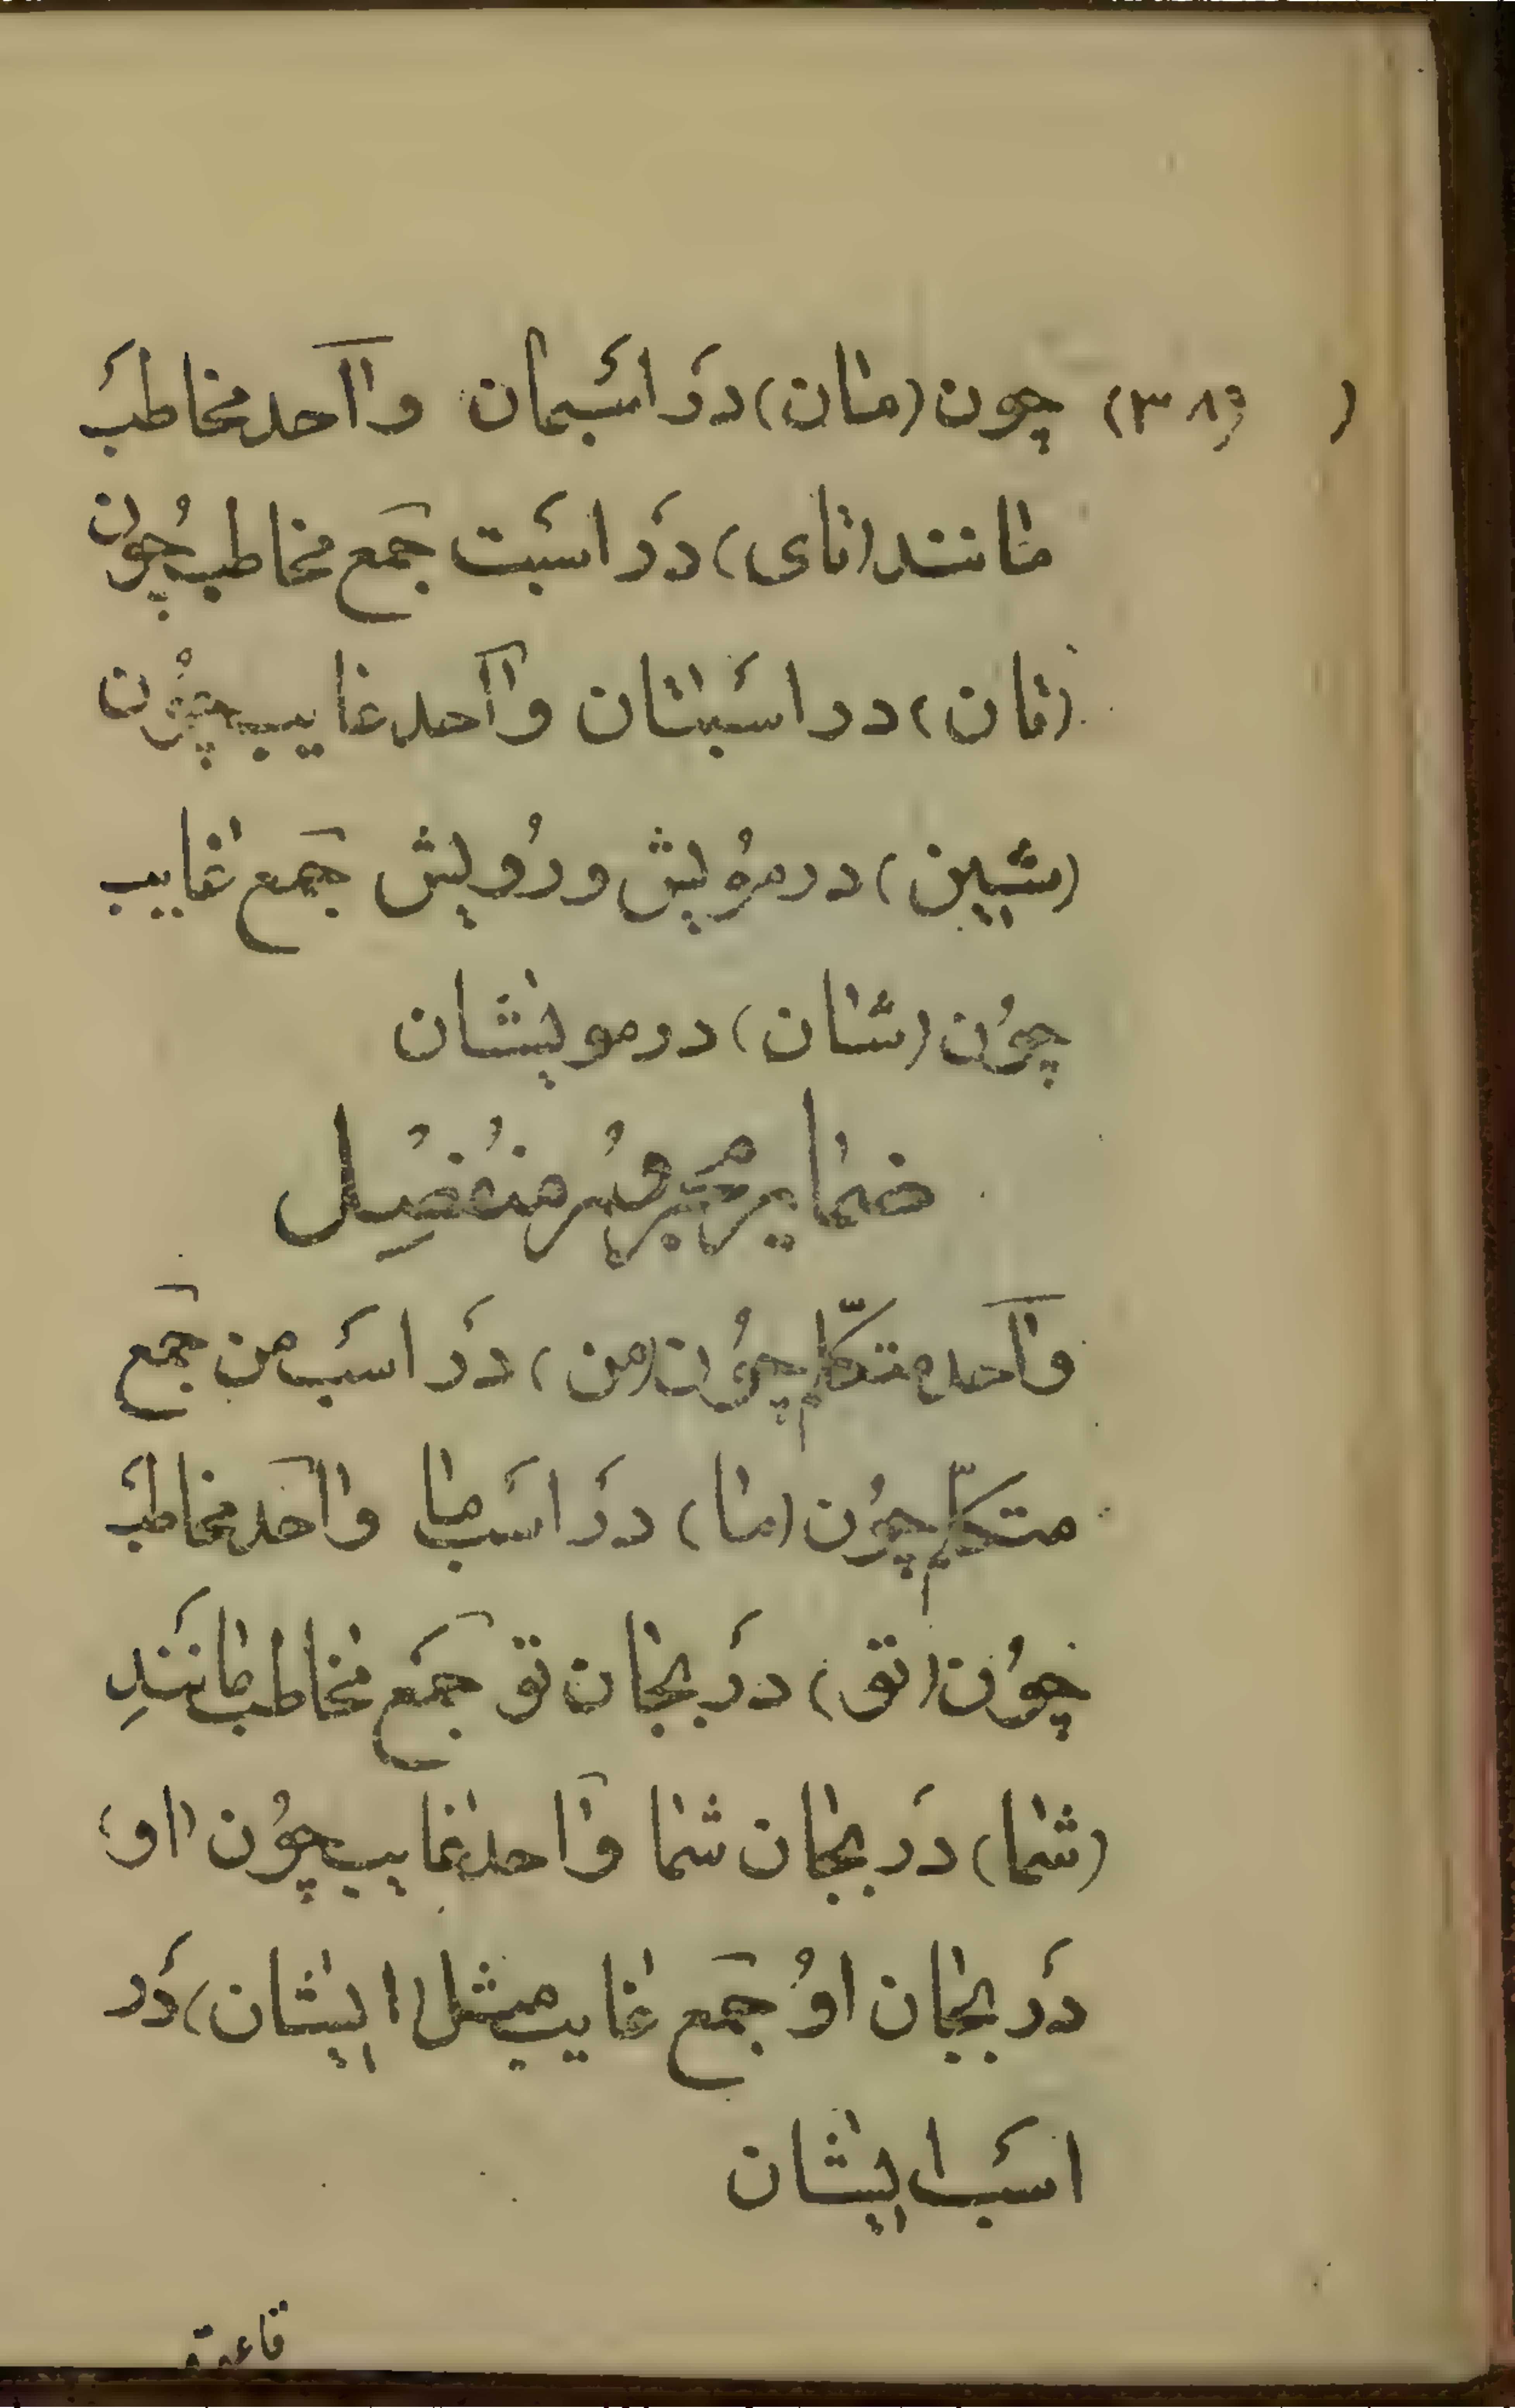 (٣٨) چون (مان) دَر اسَبمان واحد مخاطبَ
مانند (تای) دَر اسَبت جَمع مخاطب چُون
(تان) در اسَبتان واحد غایب چُون
(شین) در مُویش و رُویش جَمع غایب
چُون (شان) در مویشان
ضمایر مَجرُور مُنفَصِل
واحد متکلّم چُون (من) دَر اسَب من جَمع
متکلّم چُون (ما) دَر اسَب ما واحَد مخاطبَ
چُون (تو) دَر بجان تو جَمَع مخاطب مانَندِ
(شما) دَر بجان شما واحد غایب چُون (او)
دَر بجان اوُ جَمع غایب مثل (ایشان) دَر
اسَب ایشان
قاعدة